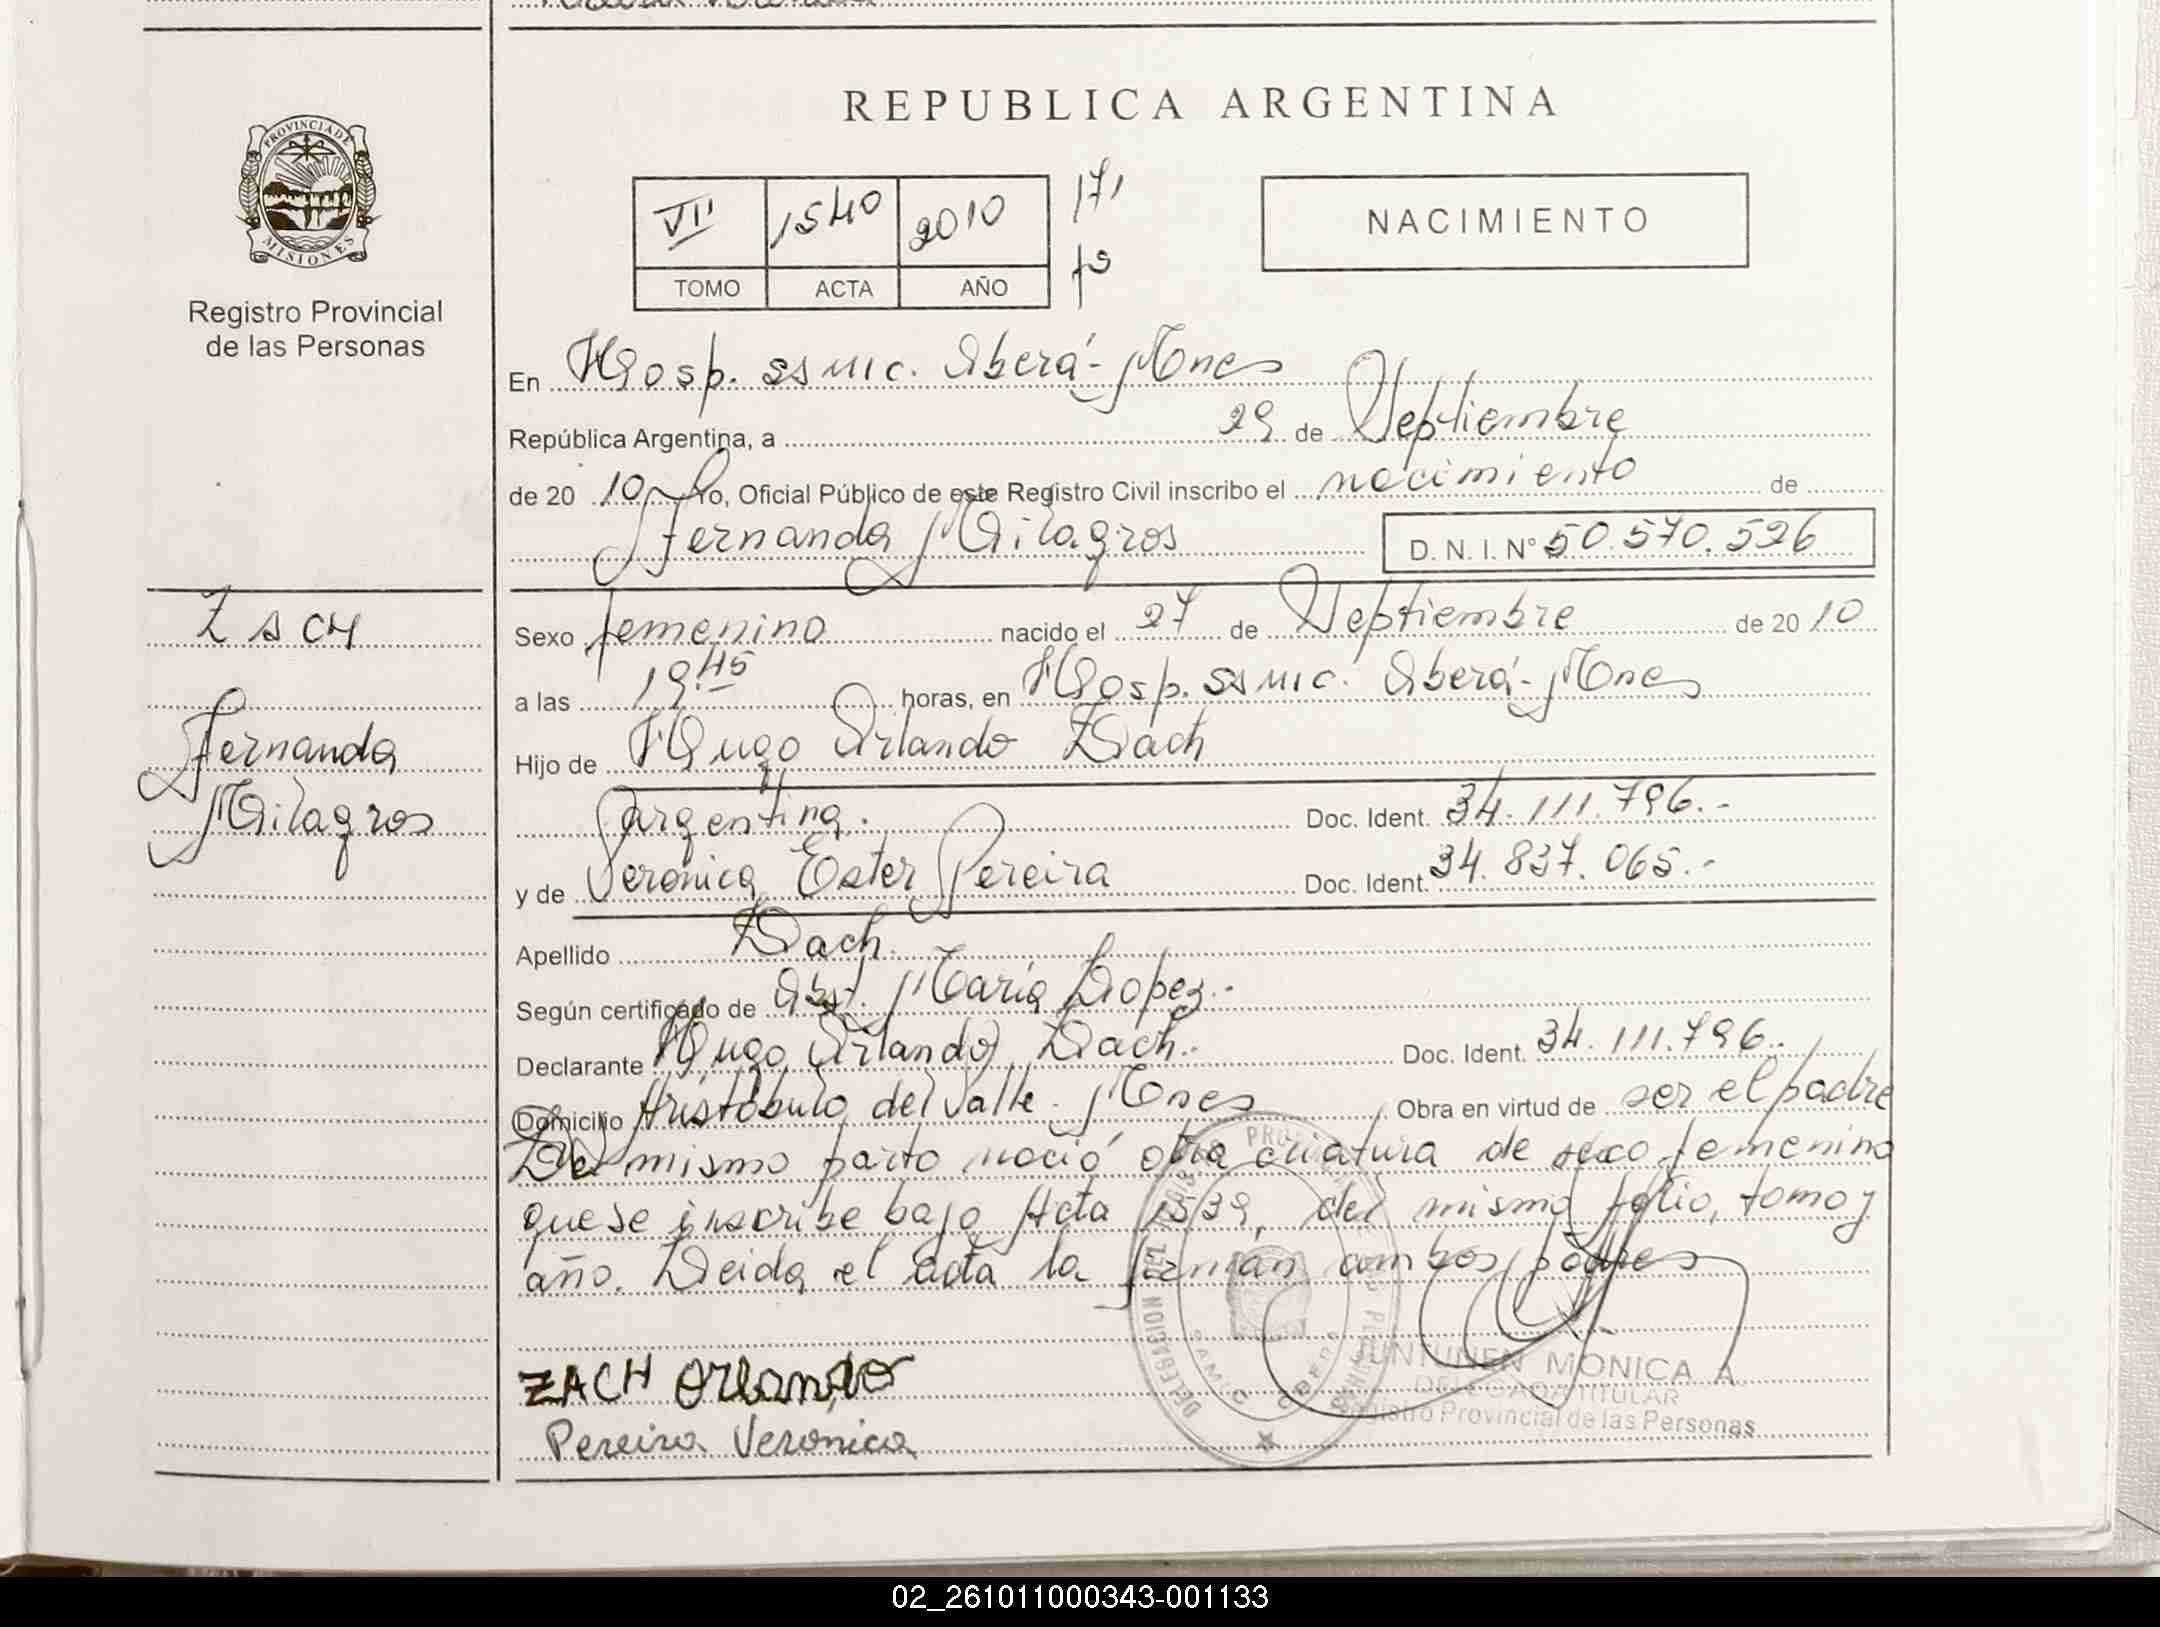 PROVINCIA DE
MISIONES
Registro Provincial
de las Personas
REPUBLICA ARGENTINA
VII 1540 2010 171
TOMO ACTA AÑO fº
NACIMIENTO
En Hosp. SSMIC. Oberá - Mnes
República Argentina, a 29 de Septiembre
de 20 10 Yo, Oficial Público de este Registro Civil inscribo el nacimiento de
Fernanda Milagros D. N. I. N° 50.570.526
ZACH
Sexo femenino nacido el 27 de Septiembre de 20 10
a las 19.45 horas, en Hosp. SSMIC. Oberá - Mnes
Fernanda
Milagros
Hijo de Hugo Orlando Zach
argentina. Doc. Ident. 34.111.796.-
y de Verónica Ester Pereira Doc. Ident. 34.837.065.-
Apellido Zach.
Según certificado de Obst. María Lopez.-
Declarante Hugo Orlando Zach.- Doc. Ident. 34.111.796.-
Domicilio Aristóbulo del Valle - Mnes Obra en virtud de ser el padre
Del mismo parto nació otra criatura de sexo femenino
que se inscribe bajo Acta 1539, del mismo folio, tomo y
año. Leida el acta la firman ambos padres
ZACH Orlando
Pereira Verónica
MONICA A.
DELEGADA TITULAR
Registro Provincial de las Personas
02_261011000343-001133